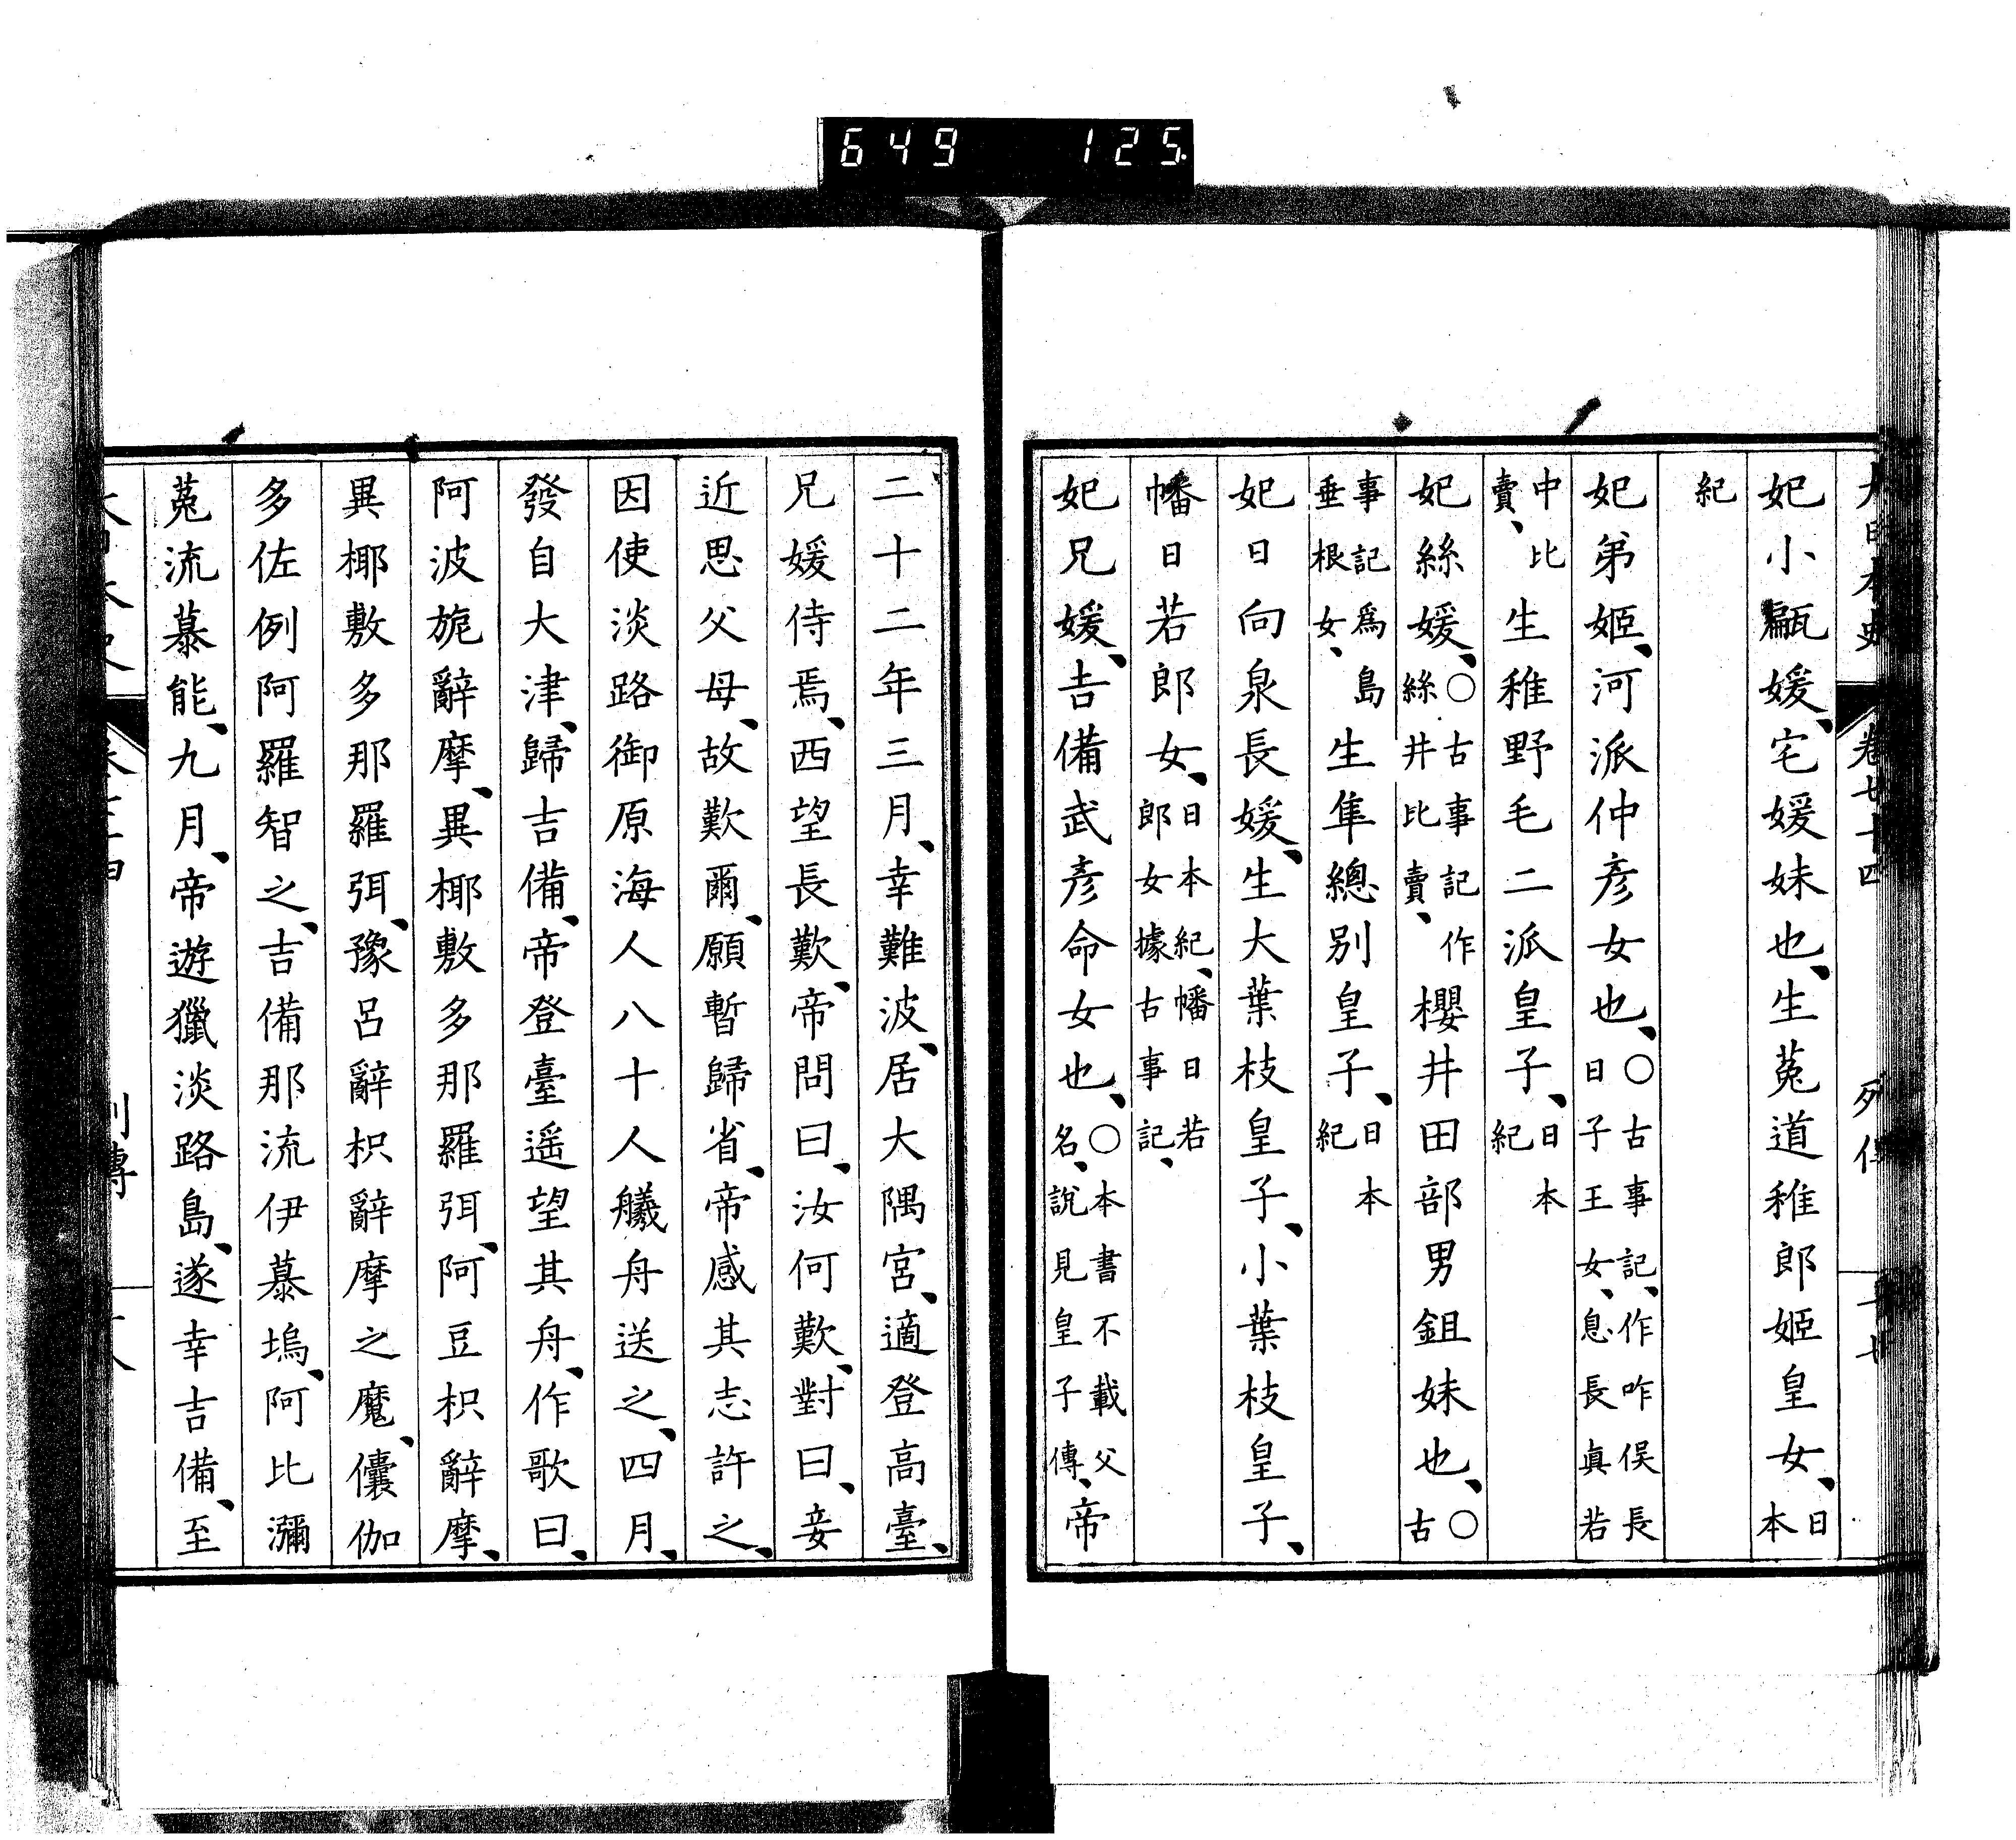 649 125.
大日本史 卷七十四 列傳 十七
妃小甂媛、宅媛妹也、生菟道稚郎姬皇女、日本
紀
妃弟姬、河派仲彥女也、○古事記、作咋俣長日子王女、息長眞若
中比賣、生稚野毛二派皇子、日本紀
妃絲媛、○古事記作絲井比賣、櫻井田部男鉏妹也、○古
事記爲島垂根女、生隼總別皇子、日本紀
妃日向泉長媛、生大葉枝皇子、小葉枝皇子、
幡日若郎女、日本紀、幡日若郎女據古事記、
妃兄媛、吉備武彥命女也、○本書不載父名、說見皇子傳、帝
二十二年三月、幸難波、居大隅宮、適登高臺、
兄媛侍焉、西望長歎、帝問曰、汝何歎、對曰、妾
近思父母、故歎爾、願暫歸省、帝感其志許之、
因使淡路御原海人八十人艤舟送之、四月、
發自大津、歸吉備、帝登臺遥望其舟、作歌曰、
阿波旎辭摩、異椰敷多那羅弭、阿豆枳辭摩、
異椰敷多那羅弭、豫呂辭枳辭摩之魔、儾伽
多佐例阿羅智之、吉備那流伊慕塢、阿比瀰
菟流慕能、九月、帝遊獵淡路島、遂幸吉備、至